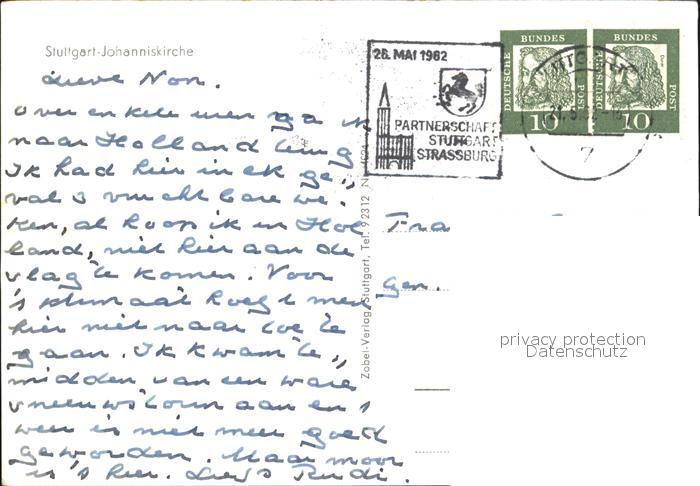 Stuttgart-Johanniskirche
Lieve Non.
Over enkele uren ga ik
naar Holland terug
Ik had hier in elk ge„
val 3 vruchtbare we„
ken, al hoop ik in Hol
land, niet hier aan de
te komen. Voor
's hoeft men
hier niet naar toe te
gaan. Ik kwam te„
midden van een ware
sneeuwstorm aan en 't
weer is niet meer goed
geworden. Maar mooi
is 't hier. Liefs Rudi.
26. MAI 1962
PARTNERSCHAFT
STUTTGART
STRASSBURG
DEUTSCHE BUNDES POST
10
DEUTSCHE BUNDES POST
10
7
Zobel-Verlag, Stuttgart, Tel. 92312
Fra
gen.
privacy protection
Datenschutz